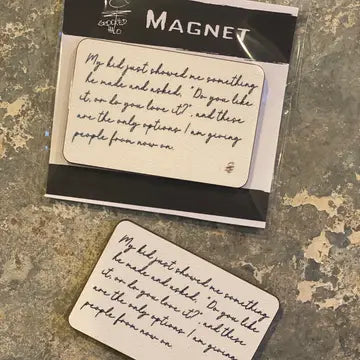 CROOKED
HALO
MAGNET
My kid just showed me something
he made and asked, "Do you like
it, or do you love it?", and these
are the only options I am giving
people from now on.
My kid just showed me something
he made and asked, "Do you like
it, or do you love it?", and these
are the only options I am giving
people from now on.